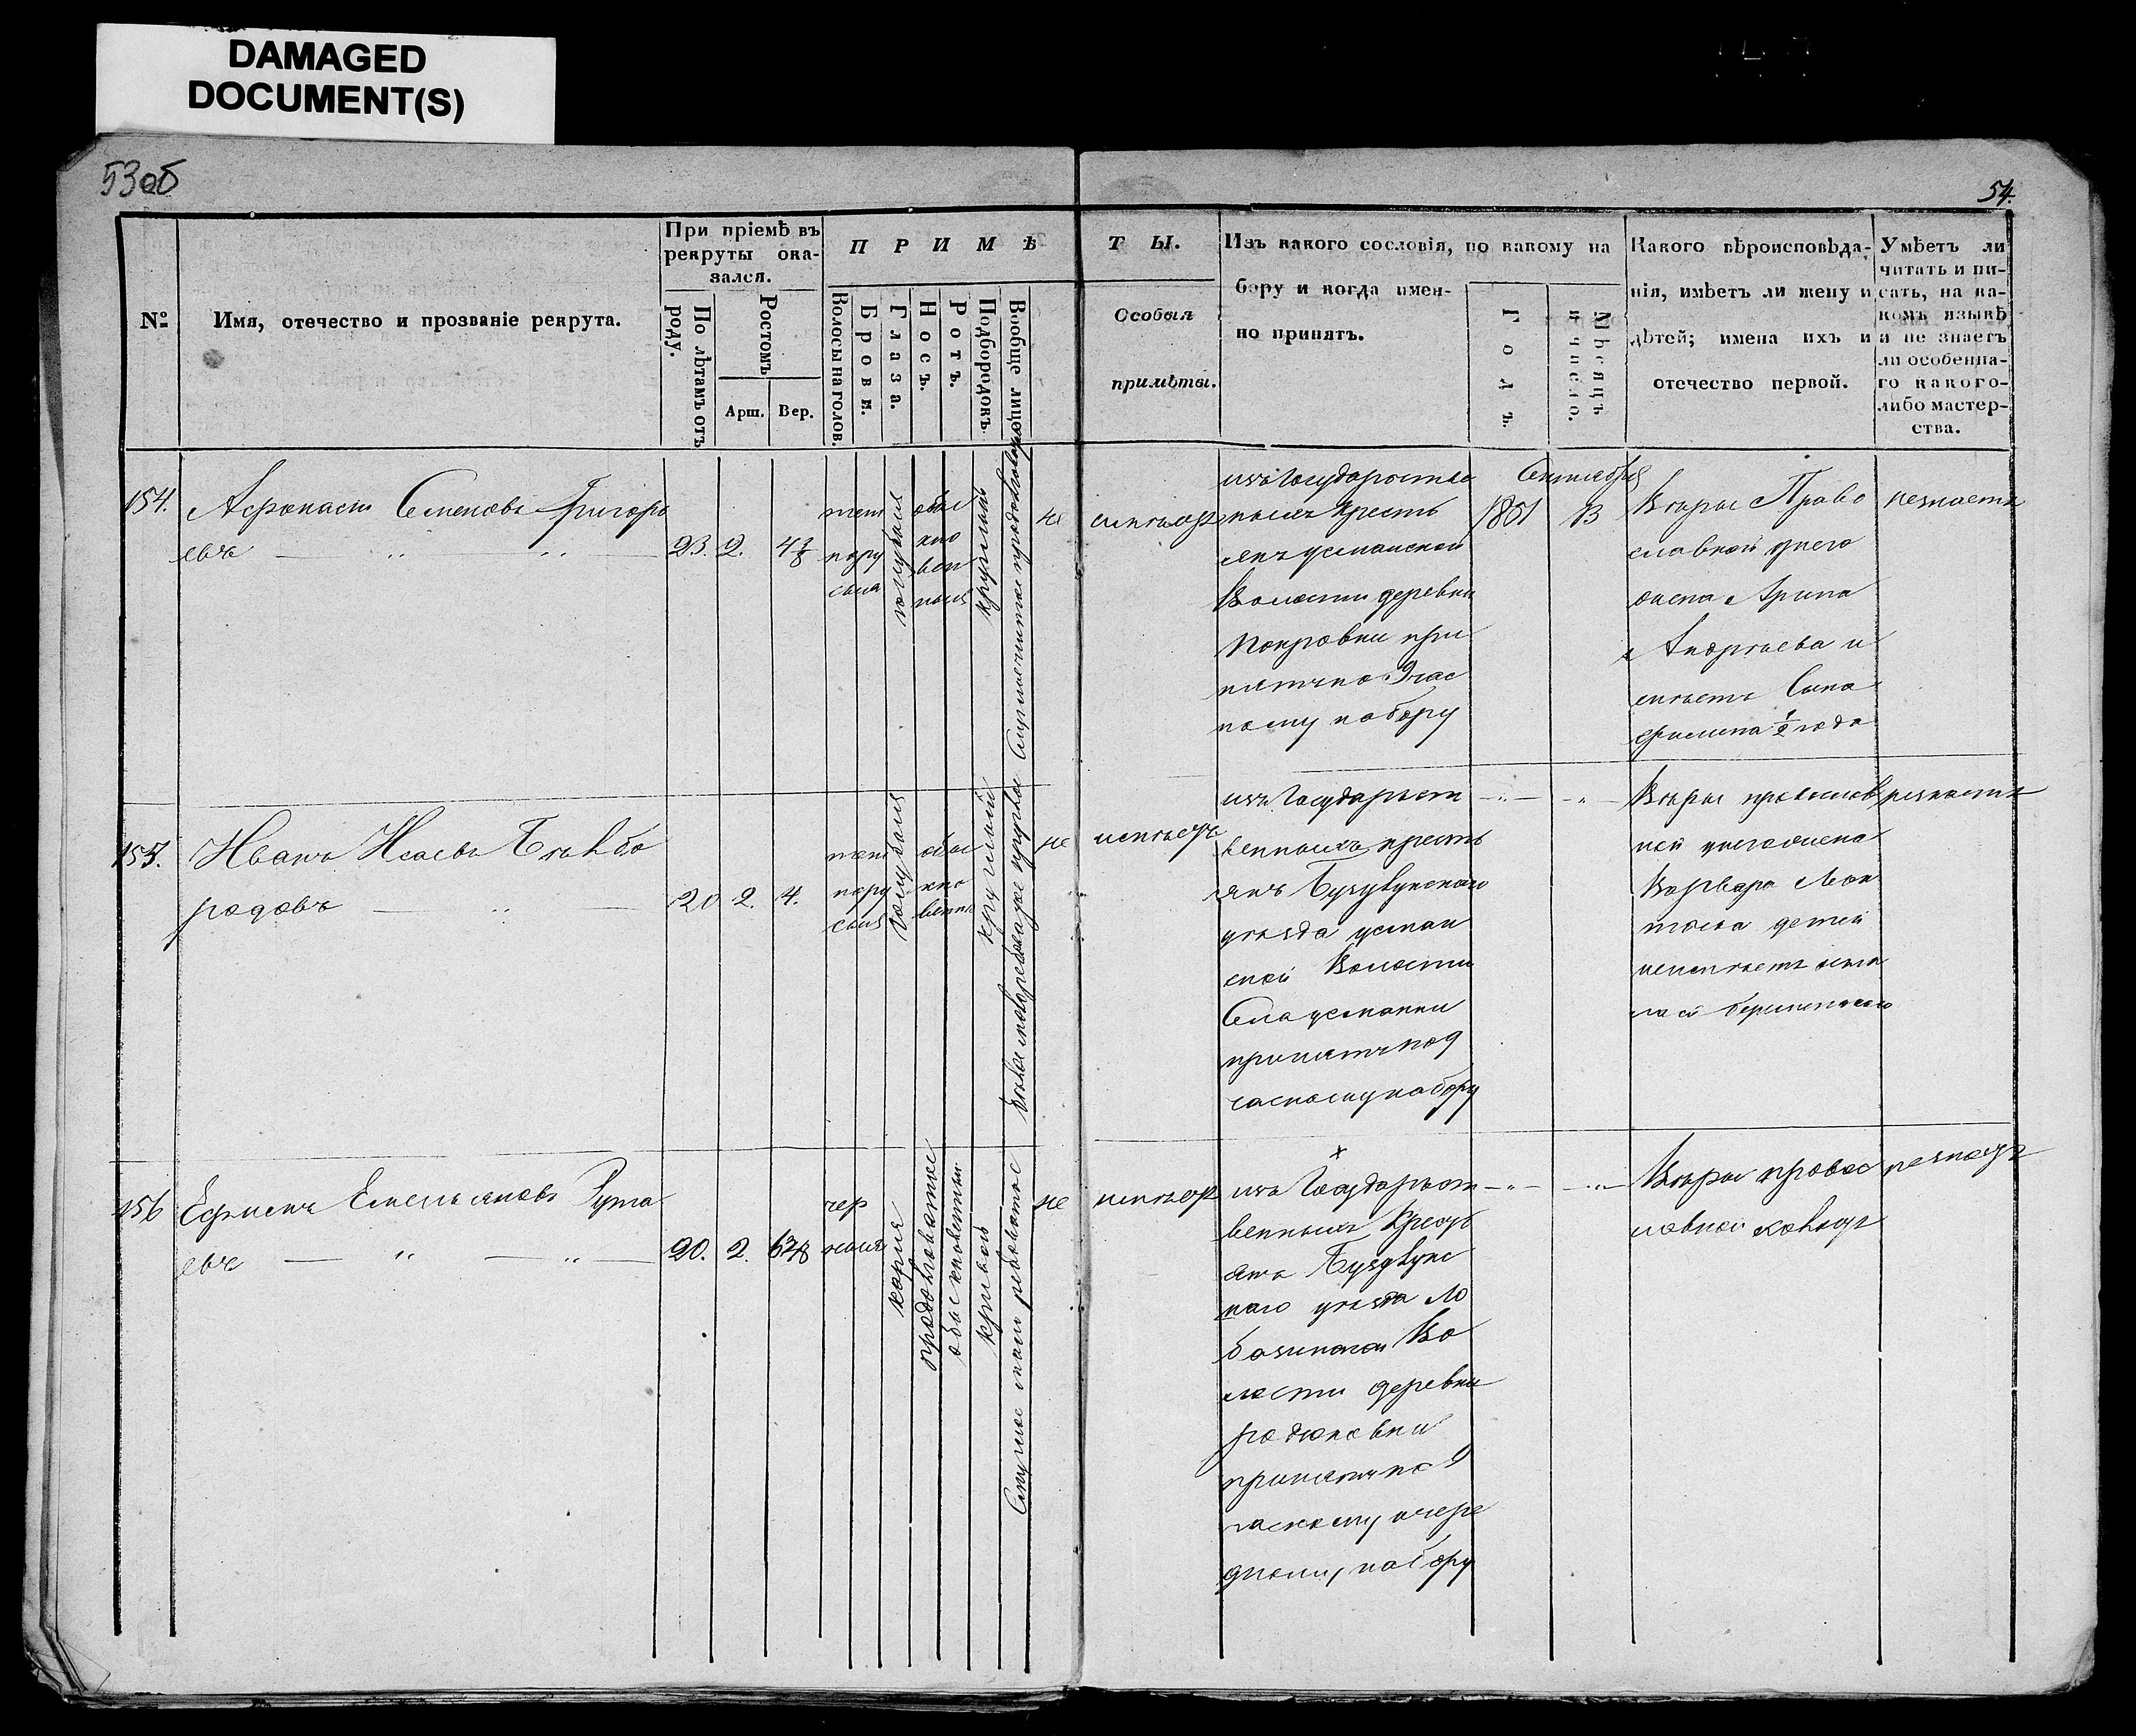 DAMAGED
DOCUMENT(S)
53об
54.
№
Имя, отечество и прозваніе рекрута.
При пріемѣ въ
рекруты ока-
зался.
По лѣтамъ отъ
роду.
Ростомъ
Арш.
Вер.
П Р И М Ѣ
Волосы на голов.
Брови.
Глаза.
Носъ.
Ротъ.
Подбородокъ.
Вообще лицо
Т Ы.
Особыя
примѣты.
Изъ какого сословія, по какому на
бору и когда имен-
но принятъ.
Годъ.
Мѣсяцъ
и число.
Какого вѣроисповѣда-
нія, имѣетъ ли жену и
дѣтей; имена ихъ и
отечество первой.
Умѣетъ ли
читать и пи-
сать, на ка-
комъ языкѣ
и не знаетъ
ли особенна-
го какого-
либо мастер-
ства.
154.
Семеновъ Григорь
евъ
23.
2.
темн
нору
сыя
голубыя
обык
кно
вен
ныя
круглый
не
имѣетъ
изъ Государстве
ныхъ крестъ
янъ усманской
Волости деревни
Покровки при
нятъ по 9 час
ному набору
1851
Сентября
13
Вѣры Право
славной у него
жена Арина
Андреева и
имѣетъ Сына
Филипа ½ года
незнаетъ
155.
Иванъ Исаевъ
родовъ
20
2.
4.
темн
нору
сыя
голубыя
обык
кно
венн
круглый
не
имѣетъ
изъ Государст
венныхъ кресть
янъ Бузулукскаго
уѣзда усман
ской Волости
Села усманки
принятъ по 9
часному набору
Вѣры православ
ной у него жена
Варвара
детей
неимѣетъ оста
лась беременною
незнаетъ
156
Емельяновъ
евъ
20.
2.
6 7/8
чер
ныя
карія
продолговатой
обыкновенный
кривой
Смуглое мало рябоватое
не
имѣетъ
изъ Государст
венныхъ Кресть
янъ Бузулукс
каго уѣзда Ло
базинской Во
лости деревни
родионовки
принятъ по 9
часному очере
дному набору
Вѣры правос
лавной холостъ
незнаетъ